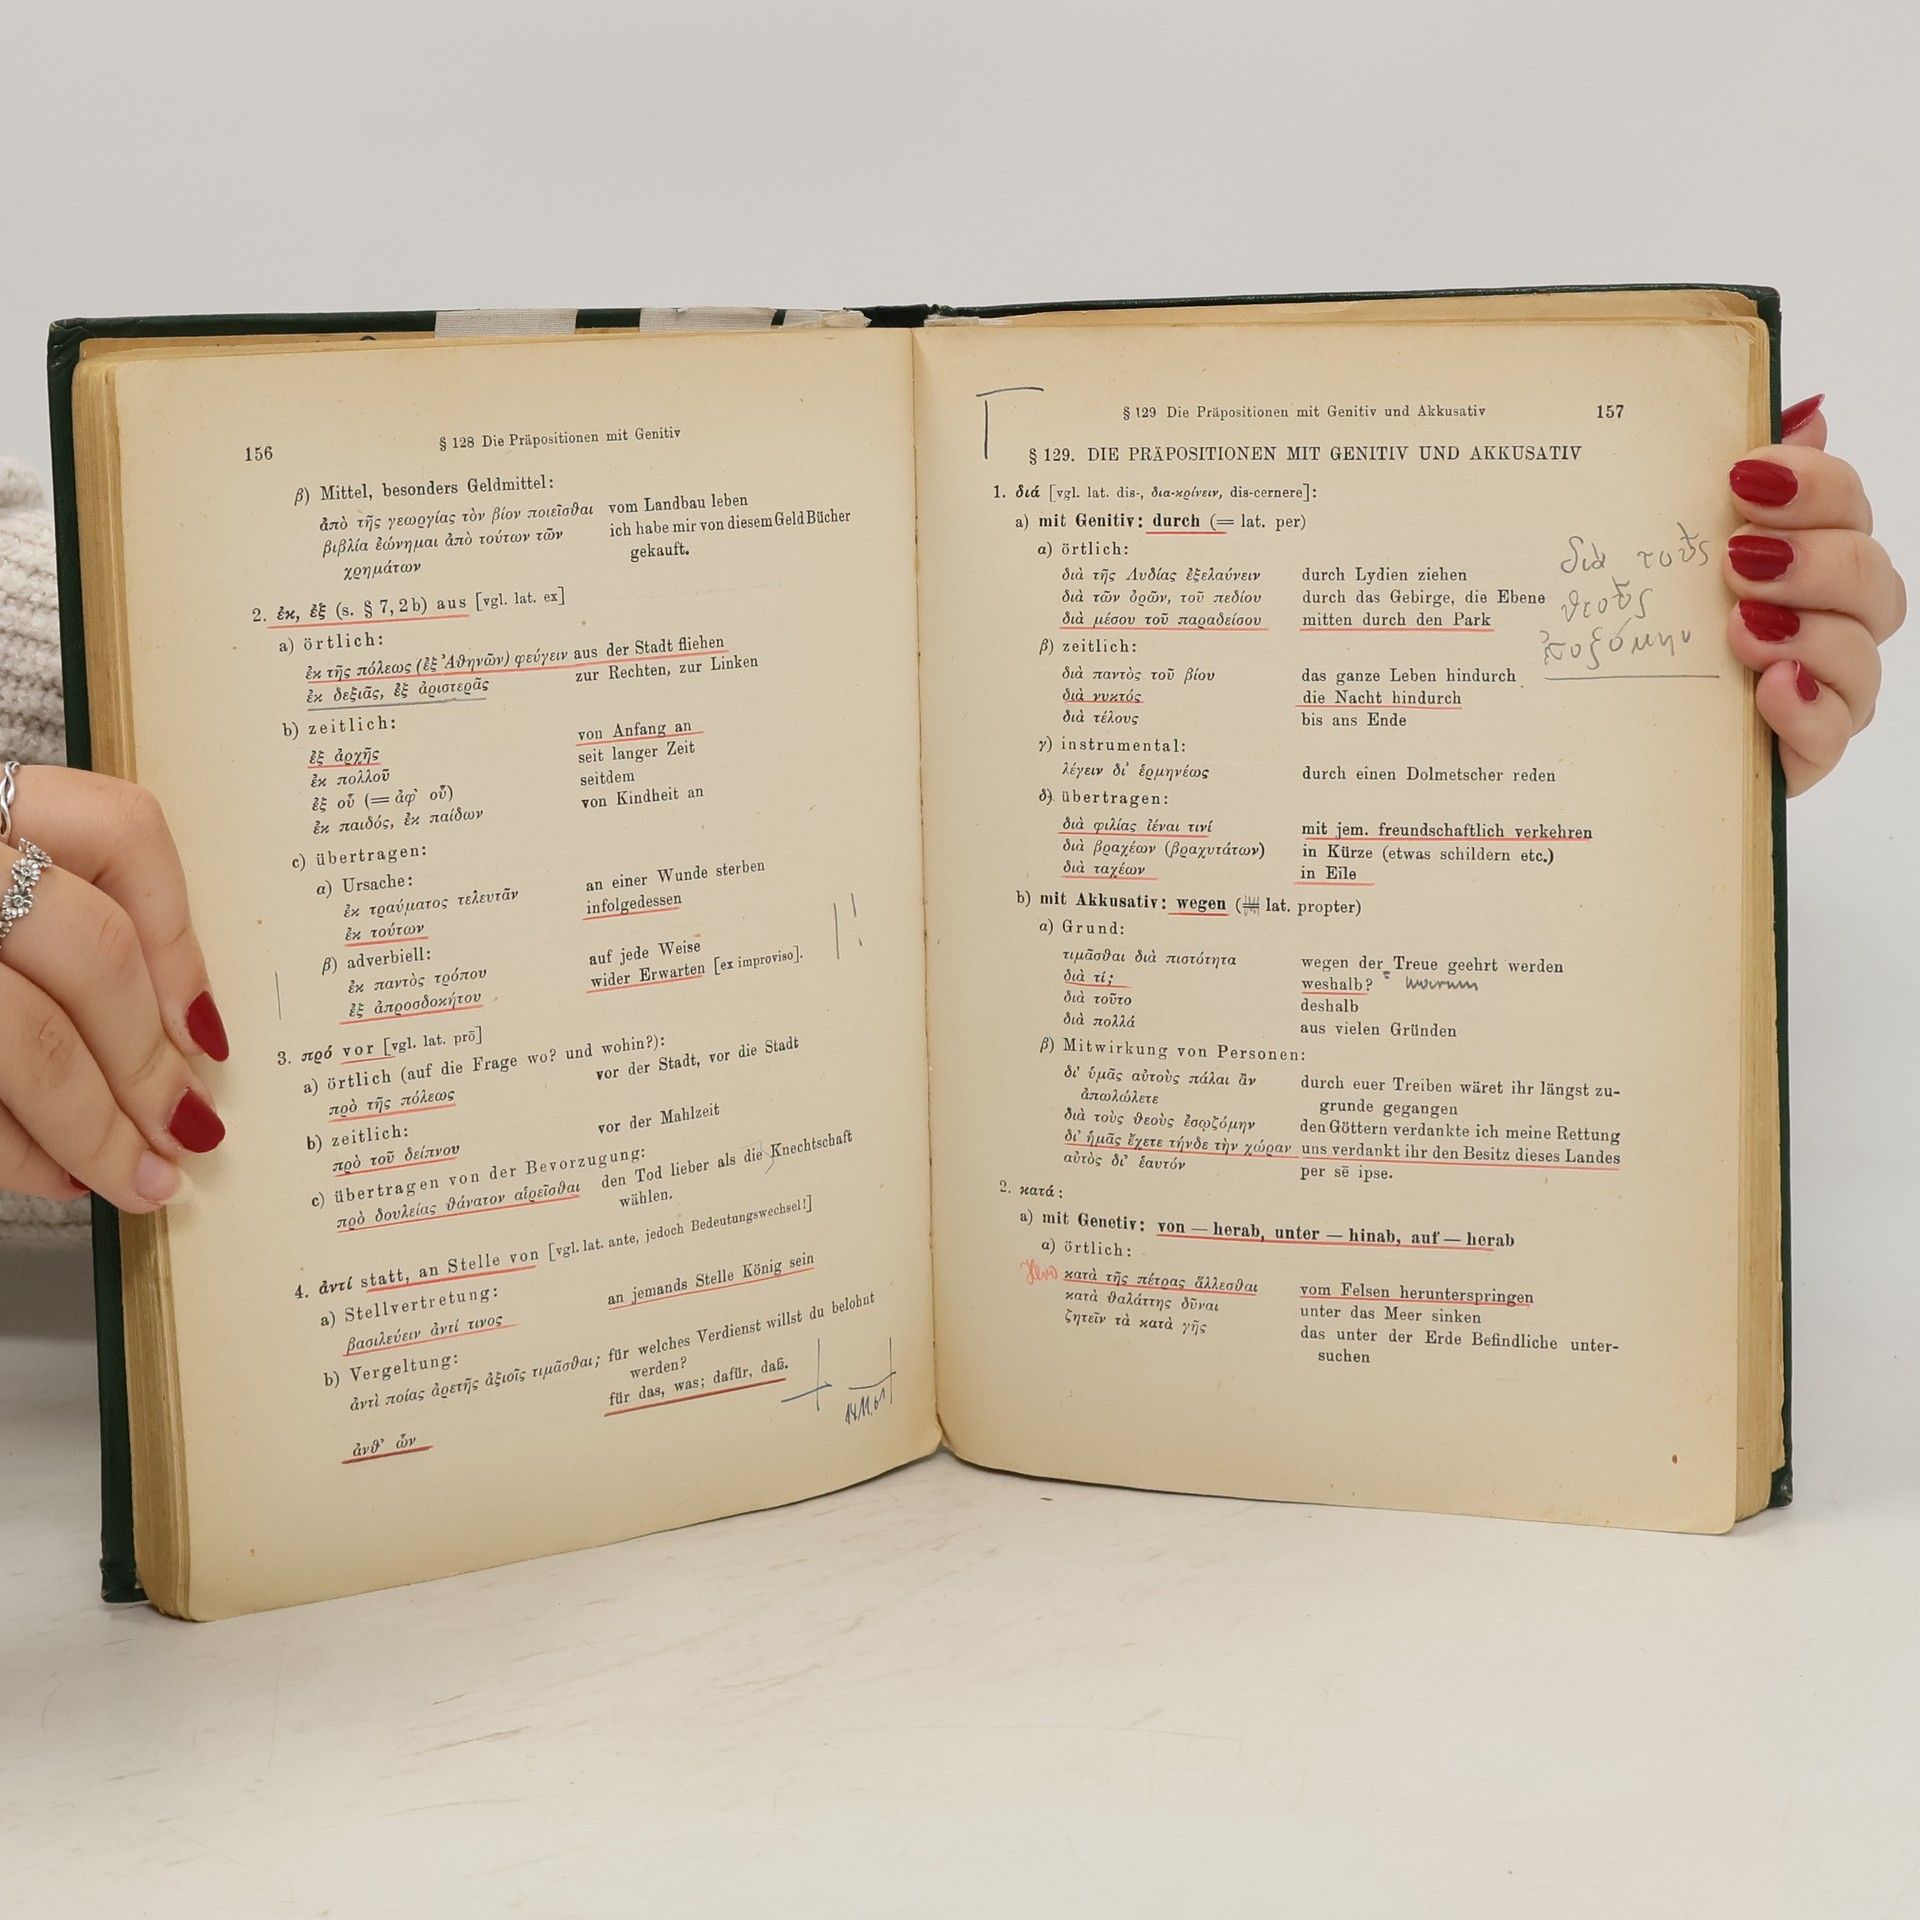 156
§ 128 Die Präpositionen mit Genitiv
β) Mittel, besonders Geldmittel:
ἀπὸ τῆς γεωργίας τὸν βίον ποιεῖσθαι vom Landbau leben
βιβλία ἐώνημαι ἀπὸ τούτων τῶν ich habe mir von diesem Geld Bücher
χρημάτων gekauft.
2. ἐκ, ἐξ (s. § 7, 2b) aus [vgl. lat. ex]
a) örtlich:
ἐκ τῆς πόλεως (ἐξ Ἀθηνῶν) φεύγειν aus der Stadt fliehen
ἐκ δεξιᾶς, ἐξ ἀριστερᾶς zur Rechten, zur Linken
b) zeitlich:
ἐξ ἀρχῆς von Anfang an
ἐκ πολλοῦ seit langer Zeit
ἐξ οὗ (= ἀφ' οὗ) seitdem
ἐκ παιδός, ἐκ παίδων von Kindheit an
c) übertragen:
α) Ursache:
ἐκ τραύματος τελευτᾶν an einer Wunde sterben
ἐκ τούτων infolgedessen
β) adverbiell:
ἐκ παντὸς τρόπου auf jede Weise
ἐξ ἀπροσδοκήτου wider Erwarten [ex improviso].
3. πρό vor [vgl. lat. prō]
a) örtlich (auf die Frage wo? und wohin?):
πρὸ τῆς πόλεως vor der Stadt, vor die Stadt
b) zeitlich:
πρὸ τοῦ δείπνου vor der Mahlzeit
c) übertragen von der Bevorzugung:
πρὸ δουλείας θάνατον αἱρεῖσθαι den Tod lieber als die Knechtschaft
wählen.
4. ἀντί statt, an Stelle von [vgl. lat. ante, jedoch Bedeutungswechsel!]
a) Stellvertretung:
βασιλεύειν ἀντί τινος an jemands Stelle König sein
b) Vergeltung:
ἀντὶ ποίας ἀρετῆς ἀξιοῖς τιμᾶσθαι; für welches Verdienst willst du belohnt
werden?
ἀνθ' ὧν für das, was; dafür, daß.
§ 129 Die Präpositionen mit Genitiv und Akkusativ
157
§ 129. DIE PRÄPOSITIONEN MIT GENITIV UND AKKUSATIV
1. διά [vgl. lat. dis-, δια-κρίνειν, dis-cernere]:
a) mit Genitiv: durch (= lat. per)
α) örtlich:
διὰ τῆς Λυδίας ἐξελαύνειν durch Lydien ziehen
διὰ τῶν ὀρῶν, τοῦ πεδίου durch das Gebirge, die Ebene
διὰ μέσου τοῦ παραδείσου mitten durch den Park
διὰ τοὺς
θεοὺς
β) zeitlich:
διὰ παντὸς τοῦ βίου das ganze Leben hindurch
διὰ νυκτός die Nacht hindurch
διὰ τέλους bis ans Ende
γ) instrumental:
λέγειν δι' ἑρμηνέως durch einen Dolmetscher reden
δ) übertragen:
διὰ φιλίας ἰέναι τινί mit jem. freundschaftlich verkehren
διὰ βραχέων (βραχυτάτων) in Kürze (etwas schildern etc.)
διὰ ταχέων in Eile
b) mit Akkusativ: wegen (= lat. propter)
α) Grund:
τιμᾶσθαι διὰ πιστότητα wegen der Treue geehrt werden
διὰ τί; weshalb? = warum
διὰ τοῦτο deshalb
διὰ πολλά aus vielen Gründen
β) Mitwirkung von Personen:
δι' ὑμᾶς αὐτοὺς πάλαι ἂν durch euer Treiben wäret ihr längst zu-
ἀπωλώλετε grunde gegangen
διὰ τοὺς θεοὺς ἐσῳζόμην den Göttern verdankte ich meine Rettung
δι' ἡμᾶς ἔχετε τήνδε τὴν χώραν uns verdankt ihr den Besitz dieses Landes
αὐτὸς δι' ἑαυτόν per sē ipse.
2. κατά:
a) mit Genetiv: von — herab, unter — hinab, auf — herab
α) örtlich:
κατὰ τῆς πέτρας ἅλλεσθαι vom Felsen herunterspringen
κατὰ θαλάττης δῦναι unter das Meer sinken
ζητεῖν τὰ κατὰ γῆς das unter der Erde Befindliche unter-
suchen